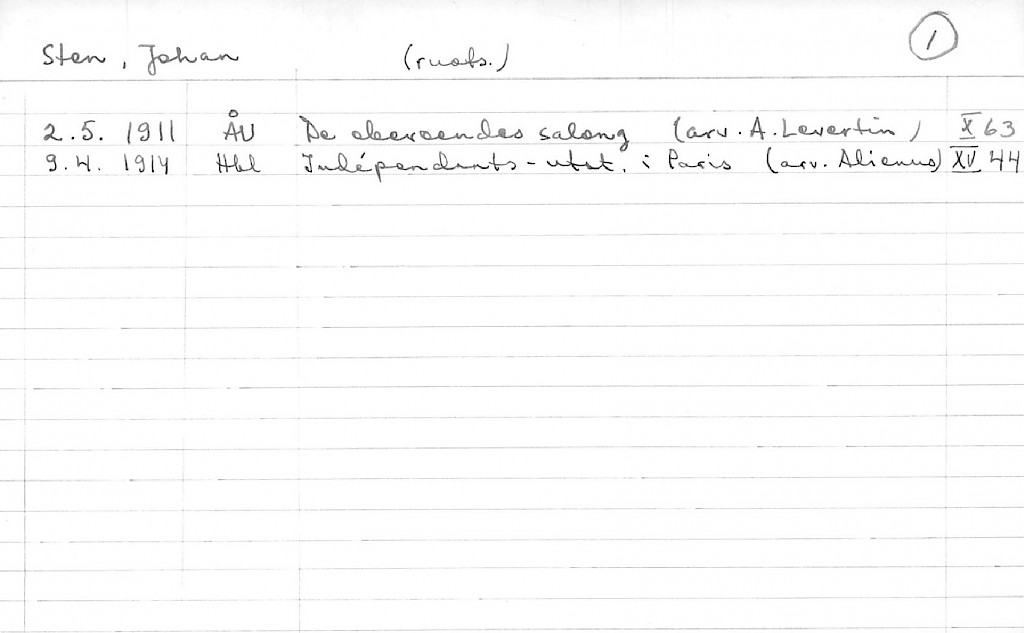 Sten, Johan (ruots.) 1
2.5. 1911 ÅU De oberoendes salong (arv. A. Levertin) X 63
9.4. 1914 Hbl Indépendants-utst. i Paris (arv. Alienus) XV 44